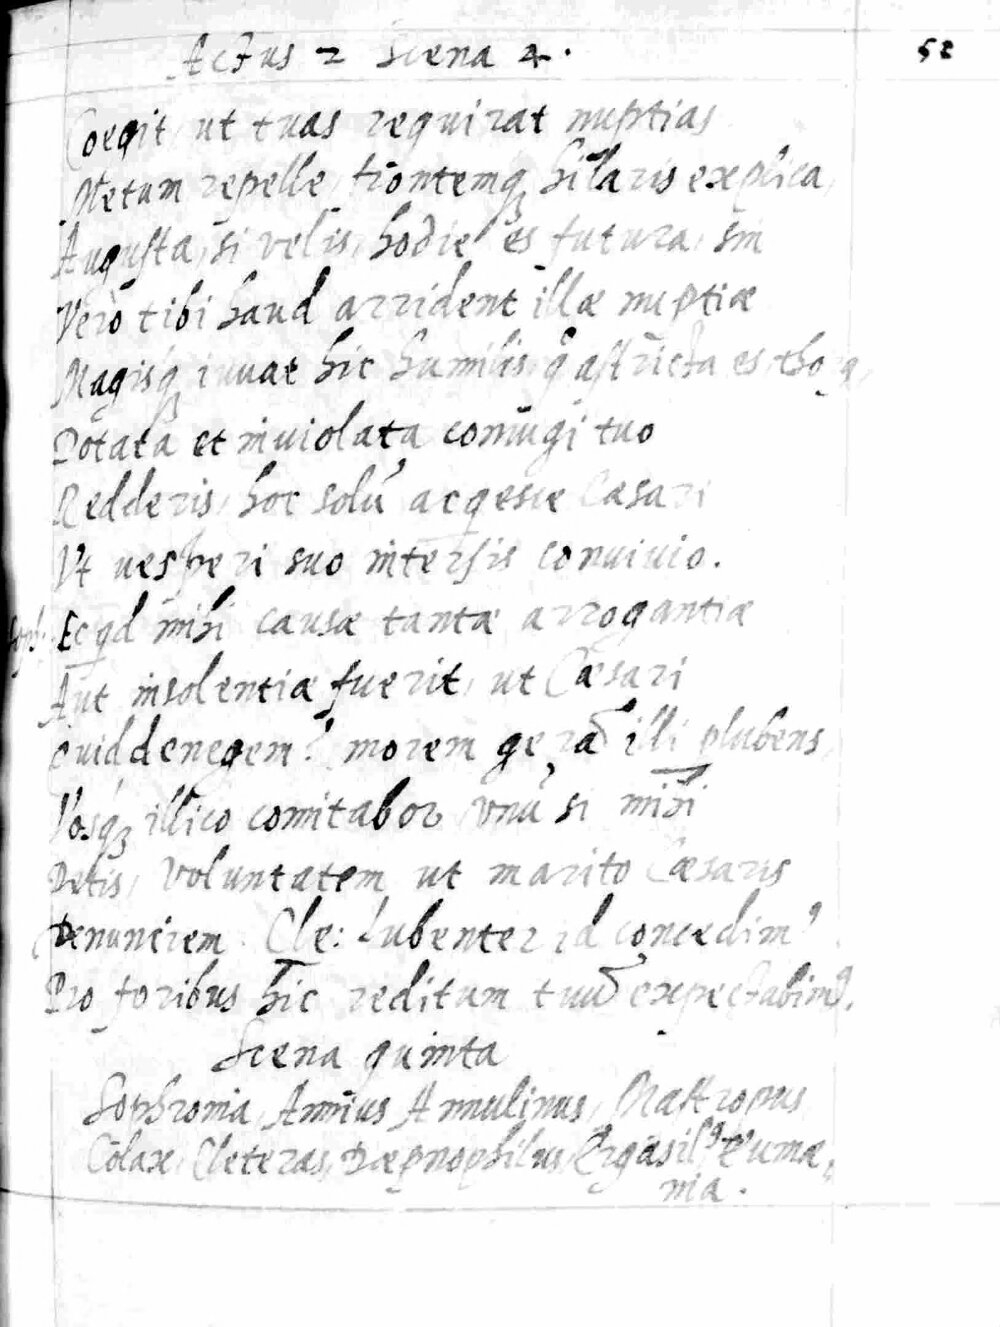 Actus 2 Scena 4.
52
Coegit, ut tuas requirat nuptias
Metum repelle, frontemq₃ hilaris explica,
Augusta, si velis, hodie es futura, sin
Verò tibi haud arrident illæ nuptiæ
Magisq₃ iuuat hic humilis, astricta es, thorq,
Potata et inuiolata coniugi tuo
Redderis, hoc solū acqesce Cæsari
Vt uesperi suo intersis conuiuio.
Soph: Ecqd mihi causæ tantæ arrogantiæ
Aut insolentiæ fuerit, ut Cæsari
Quid denegem? morem gerā illi plubens,
Vosq₃ illico comitabor unū si mihi
Detis, voluntatem ut marito Cæsaris
Denunciem. Cle: Lubenter id concedim⁹
Pro foribus hic reditum tuū expectabim⁹.
Scena quinta
Sophronia, Annius Annulinus, Mastropus
Colax, Cleteras, Dæpnophilus, Ergasil⁹, Peumæ,
nia.